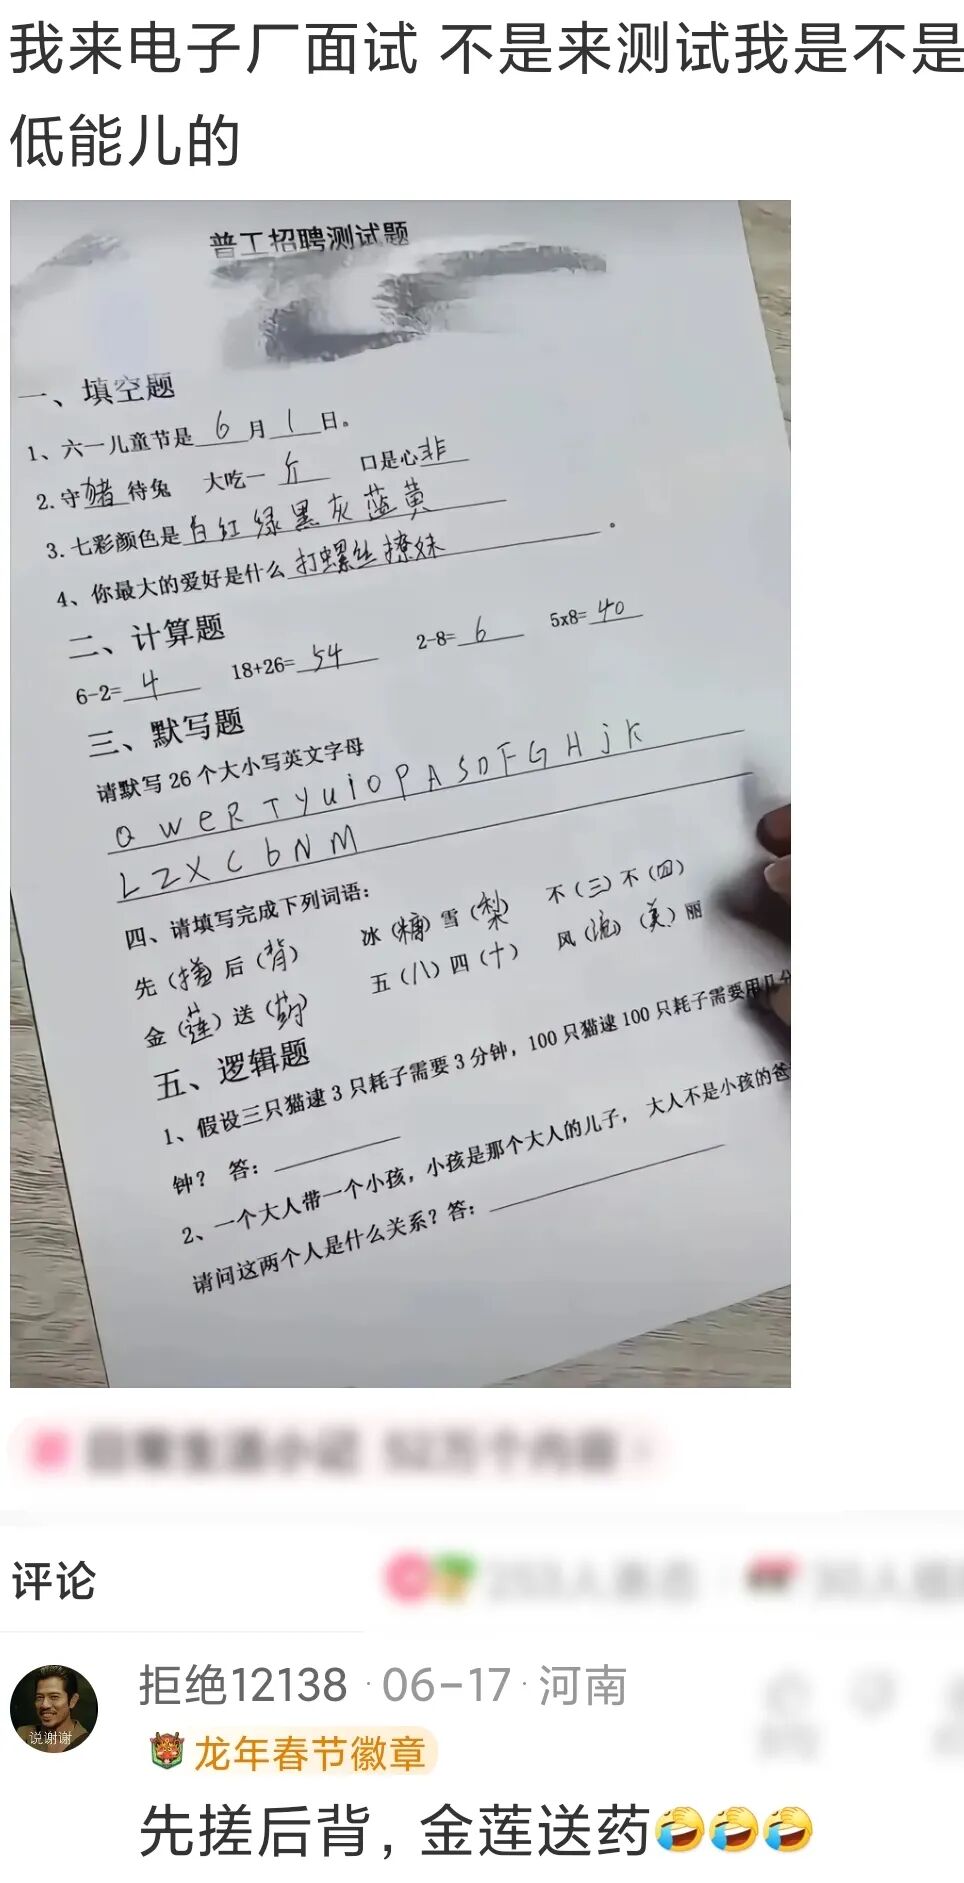 我来电子厂面试 不是来测试我是不是
低能儿的
普工招聘测试题
一、填空题
1、六一儿童节是 6 月 1 日。
2.守猪待兔 大吃一斤 口是心非
3.七彩颜色是白红绿黑灰蓝黄
4、你最大的爱好是什么打螺丝撩妹。
二、计算题
6-2=4 18+26=54 2-8=6 5x8=40
三、默写题
请默写26个大小写英文字母
Q w e R T y u i O P A S D F G H j K
L Z X C b N M
四、请填写完成下列词语：
先（搓）后（背） 冰（糖）雪（梨） 不（三）不（四）
金（莲）送（药） 五（八）四（十） 风（流）（美）丽
五、逻辑题
1、假设三只猫逮3只耗子需要3分钟，100只猫逮100只耗子需要用几分
钟？ 答：
2、一个大人带一个小孩，小孩是那个大人的儿子，大人不是小孩的爸
请问这两个人是什么关系？答：
评论
拒绝12138 · 06-17 · 河南
说谢谢
龙年春节徽章
先搓后背，金莲送药🤣🤣🤣